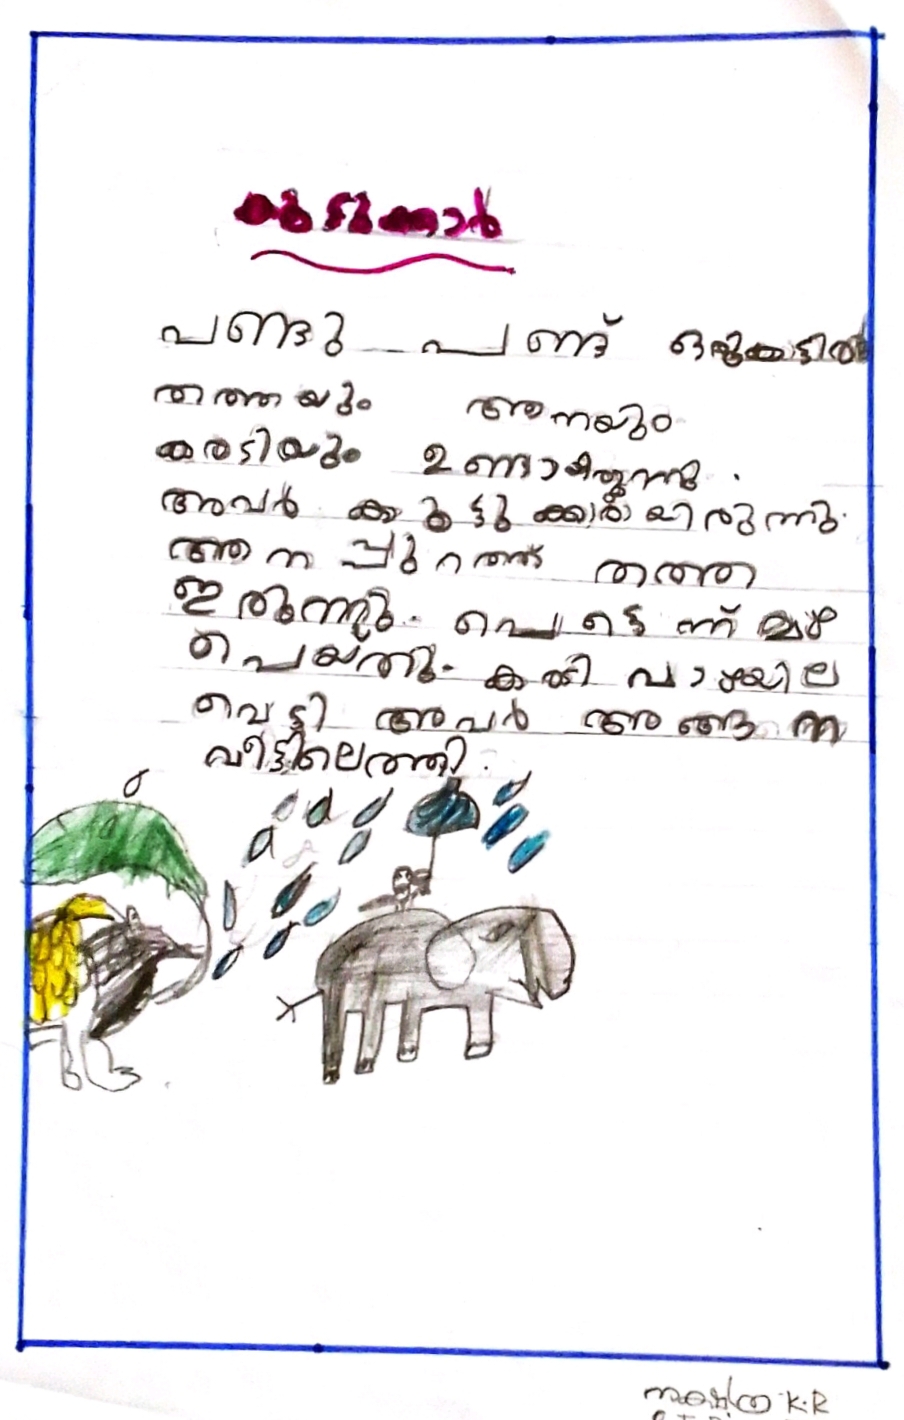 കൂട്ടുക്കാർ
പണ്ടു പണ്ട് ഒരുക്കാട്ടിൽ
തത്തയും ആനയും
കരടിയും ഉണ്ടായിരുന്നു.
അവർ കൂട്ടുക്കാരായിരുന്നു.
ആനപ്പുറത്ത് തത്ത
ഇരുന്നു. പെട്ടെന്ന് മഴ
പെയ്തു. വാഴയില
വെട്ടി അവർ അങ്ങനെ
വീട്ടിലെത്തി.
K.R